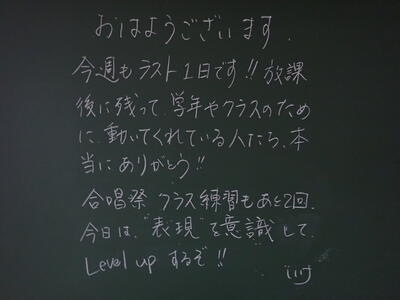 おはようございます.
今週もラスト1日です!! 放課
後に残って、学年やクラスのため
に、動いてくれている人たち、本
当にありがとう!!
合唱祭 クラス練習もあと2回.
今日は、"表現"を意識して、
Level up するぞ!!